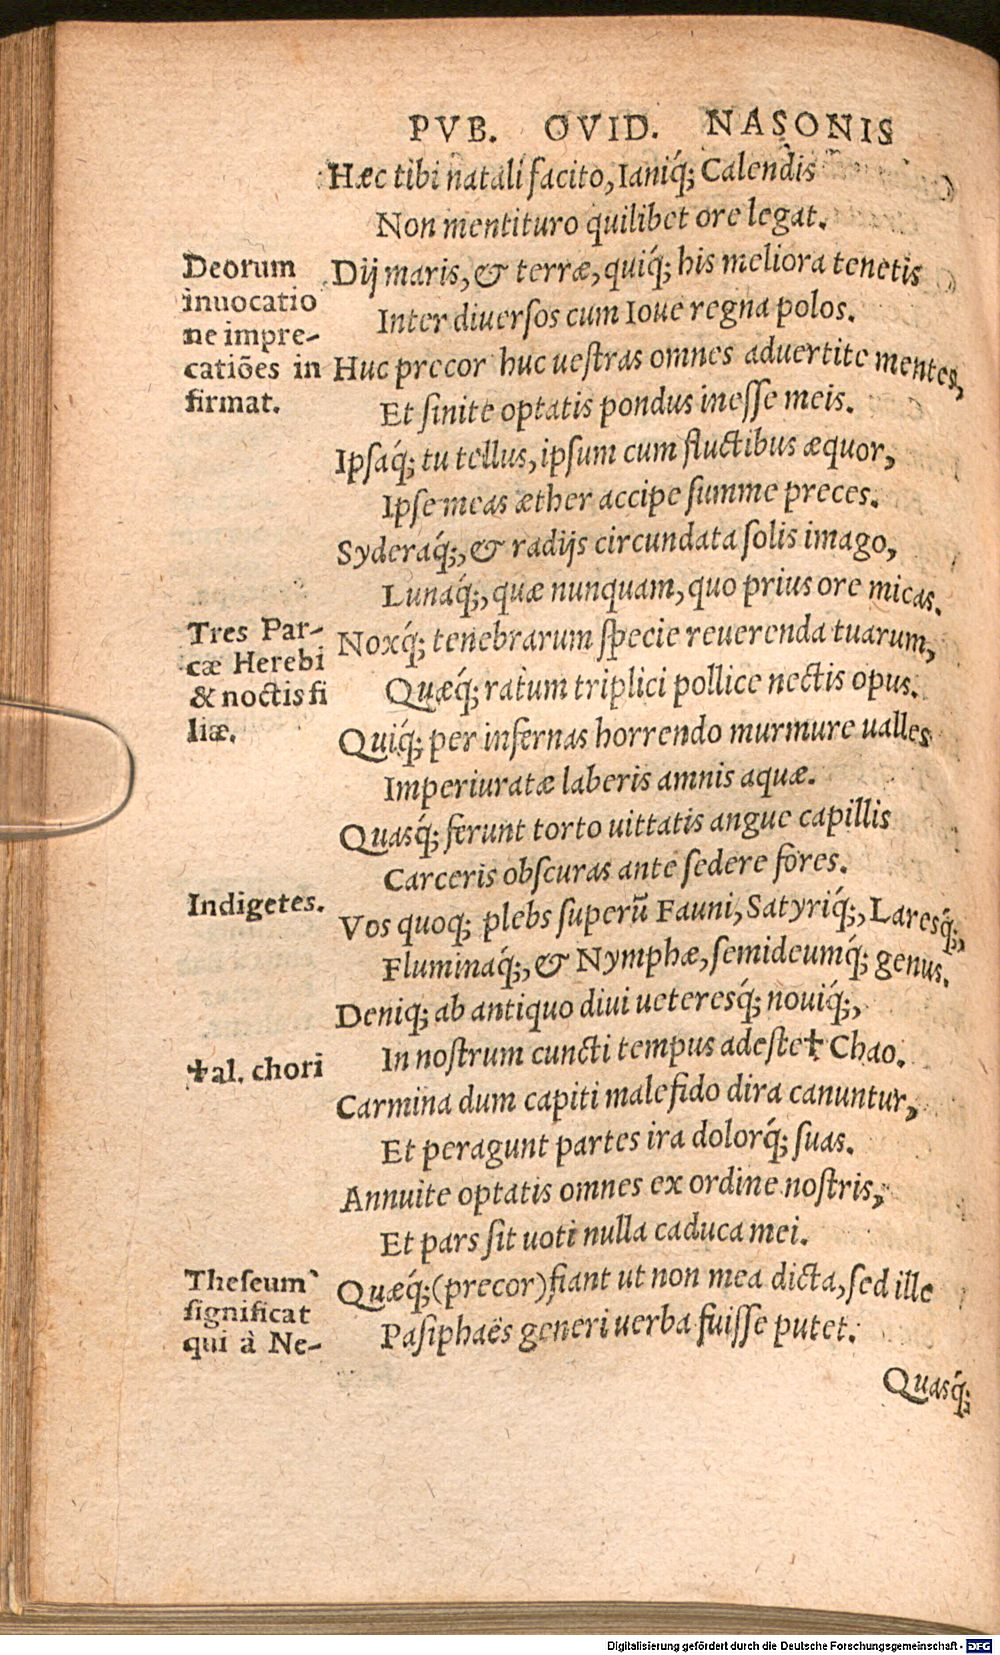 PVB. OVID. NASONIS
Hæc tibi natali facito, Ianiq́; Calendis
Non mentituro quilibet ore legat.
Deorum
inuocatio
ne impre-
catiões in
firmat.
Dij maris, & terræ, quiq́; his meliora tenetis
Inter diuersos cum Ioue regna polos.
Huc precor huc uestras omnes aduertite mentes,
Et sinite optatis pondus inesse meis.
Ipsaq́; tu tellus, ipsum cum fluctibus æquor,
Ipse meas æther accipe summe preces.
Syderaq́;, & radijs circundata solis imago,
Lunaq́;, quæ nunquam, quo prius ore micas.
Tres Par-
cæ Herebi
& noctis fi
liæ.
Noxq́; tenebrarum specie reuerenda tuarum,
Quæq́; ratum triplici pollice nectis opus.
Quiq́; per infernas horrendo murmure ualles
Imperiuratæ laberis amnis aquæ.
Quasq́; ferunt torto uittatis angue capillis
Carceris obscuras ante sedere fores.
Indigetes.
Vos quoq; plebs superũ Fauni, Satyriq́;, Laresq́;,
Fluminaq́;, & Nymphæ, semideumq́; genus.
Deniq; ab antiquo diui ueteresq́; nouiq́;,
In nostrum cuncti tempus adeste✝ Chao.
✝al. chori
Carmina dum capiti malefido dira canuntur,
Et peragunt partes ira dolorq́; suas.
Annuite optatis omnes ex ordine nostris,
Et pars sit uoti nulla caduca mei.
Theseum
significat
qui à Ne-
Quæq́; (precor) fiant ut non mea dicta, sed ille
Pasiphaës generi uerba fuisse putet.
Quasq́;
Digitalisierung gefördert durch die Deutsche Forschungsgemeinschaft - DFG